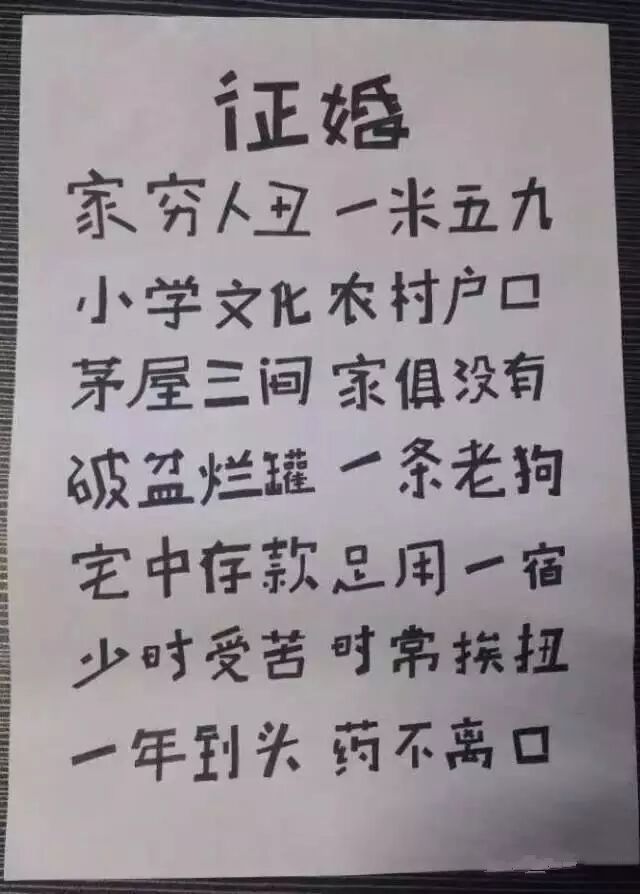 征婚
家穷人丑 一米五九
小学文化 农村户口
茅屋三间 家俱没有
破盆烂罐 一条老狗
宅中存款 足用一宿
少时受苦 时常挨扭
一年到头 药不离口